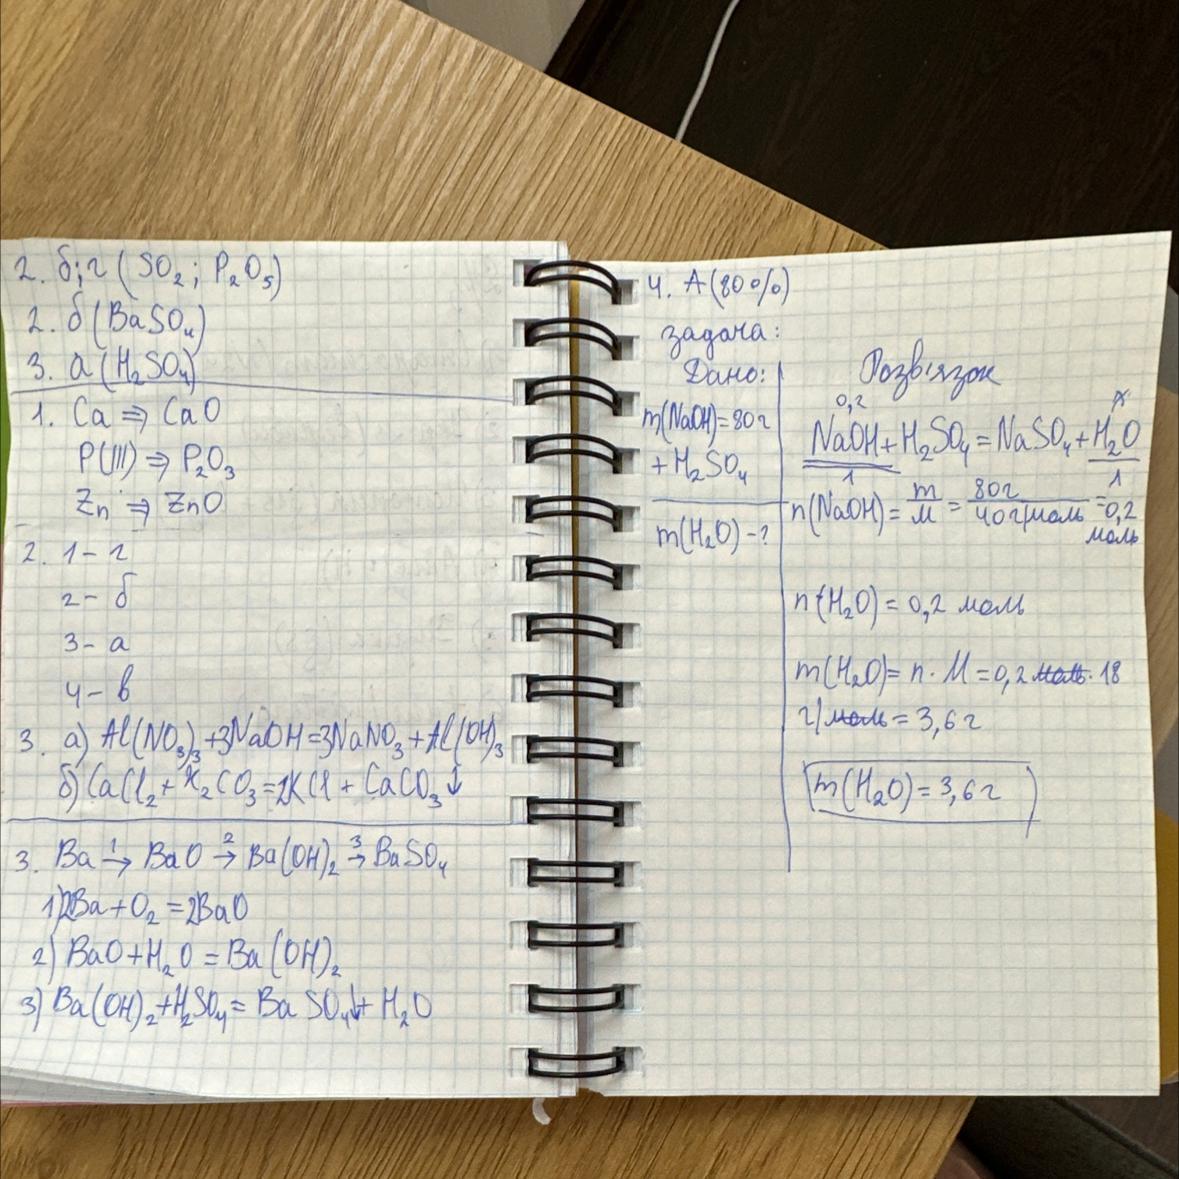 2. б; г (SO₂; P₂O₅)
2. б (BaSO₄)
3. а (H₂SO₄)
1. Ca ⇒ CaO
P(III) ⇒ P₂O₃
Zn ⇒ ZnO
2. 1 - г
2 - б
3 - а
4 - в
3. а) Al(NO₃)₃ + 3NaOH = 3NaNO₃ + Al(OH)₃
б) CaCl₂ + K₂CO₃ = 2KCl + CaCO₃↓
3. Ba →¹ BaO →² Ba(OH)₂ →³ BaSO₄
1) 2Ba + O₂ = 2BaO
2) BaO + H₂O = Ba(OH)₂
3) Ba(OH)₂ + H₂SO₄ = BaSO₄↓ + H₂O
4. А (80%)
задача:
Дано:
m(NaOH) = 80г
+ H₂SO₄
m(H₂O) - ?
Розв'язок
0,2 x
NaOH + H₂SO₄ = NaSO₄ + H₂O
1 1
n(NaOH) = m/M = 80г/40г/моль = 0,2
моль
n(H₂O) = 0,2 моль
m(H₂O) = n · M = 0,2 моль · 18
г/моль = 3,6 г
m(H₂O) = 3,6 г